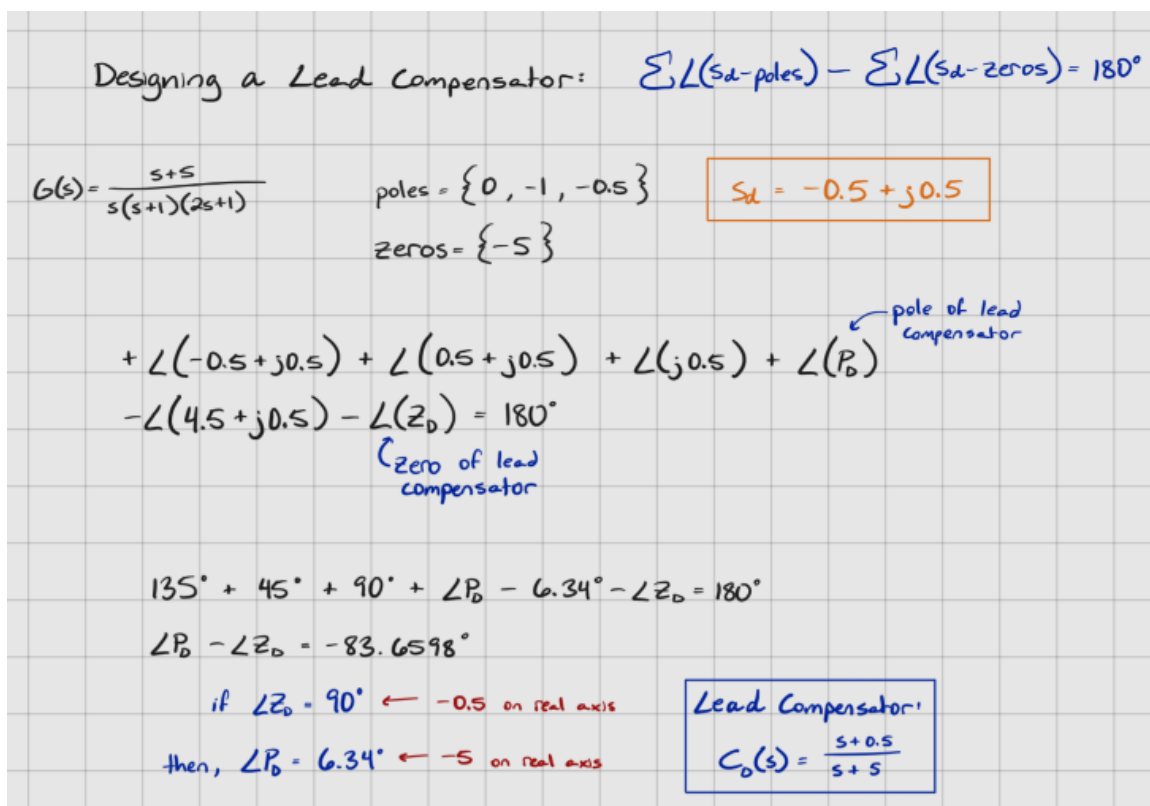 Designing a Lead Compensator: ∑∠(s_d-poles) − ∑∠(s_d-zeros) = 180°
G(s) = (s+5)/(s(s+1)(2s+1)) poles = {0, -1, -0.5} s_d = -0.5 + j0.5
zeros = {-5}
pole of lead
compensator
+ ∠(-0.5 + j0.5) + ∠(0.5 + j0.5) + ∠(j0.5) + ∠(P_D)
-∠(4.5 + j0.5) - ∠(Z_D) = 180°
zero of lead
compensator
135° + 45° + 90° + ∠P_D - 6.34° - ∠Z_D = 180°
∠P_D - ∠Z_D = -83.6598°
if ∠Z_D = 90° ← -0.5 on real axis
then, ∠P_D = 6.34° ← -5 on real axis
Lead Compensator:
C_D(s) = (s+0.5)/(s+5)